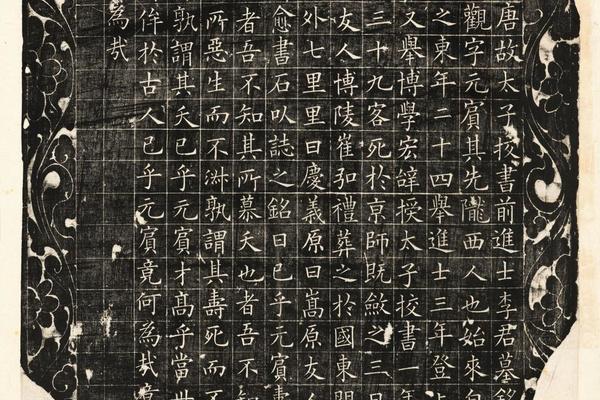 唐故太子校書前進士李君墓銘
觀字元賓其先隴西人也始來自
之東年二十四舉進士三年登上
又舉博學宏辭授太子校書一年
三十九客死於京師既斂之三日
友人博陵崔弘禮葬之於國東門
外七里里曰慶義原曰嵩原友人
愈書石以誌之銘曰已乎元賓壽
者吾不知其所慕夭也者吾不知
所惡生而不淑孰謂其壽死而不
孰謂其夭已乎元賓才高乎當世
侔於古人已乎元賓竟何為哉竟
為哉